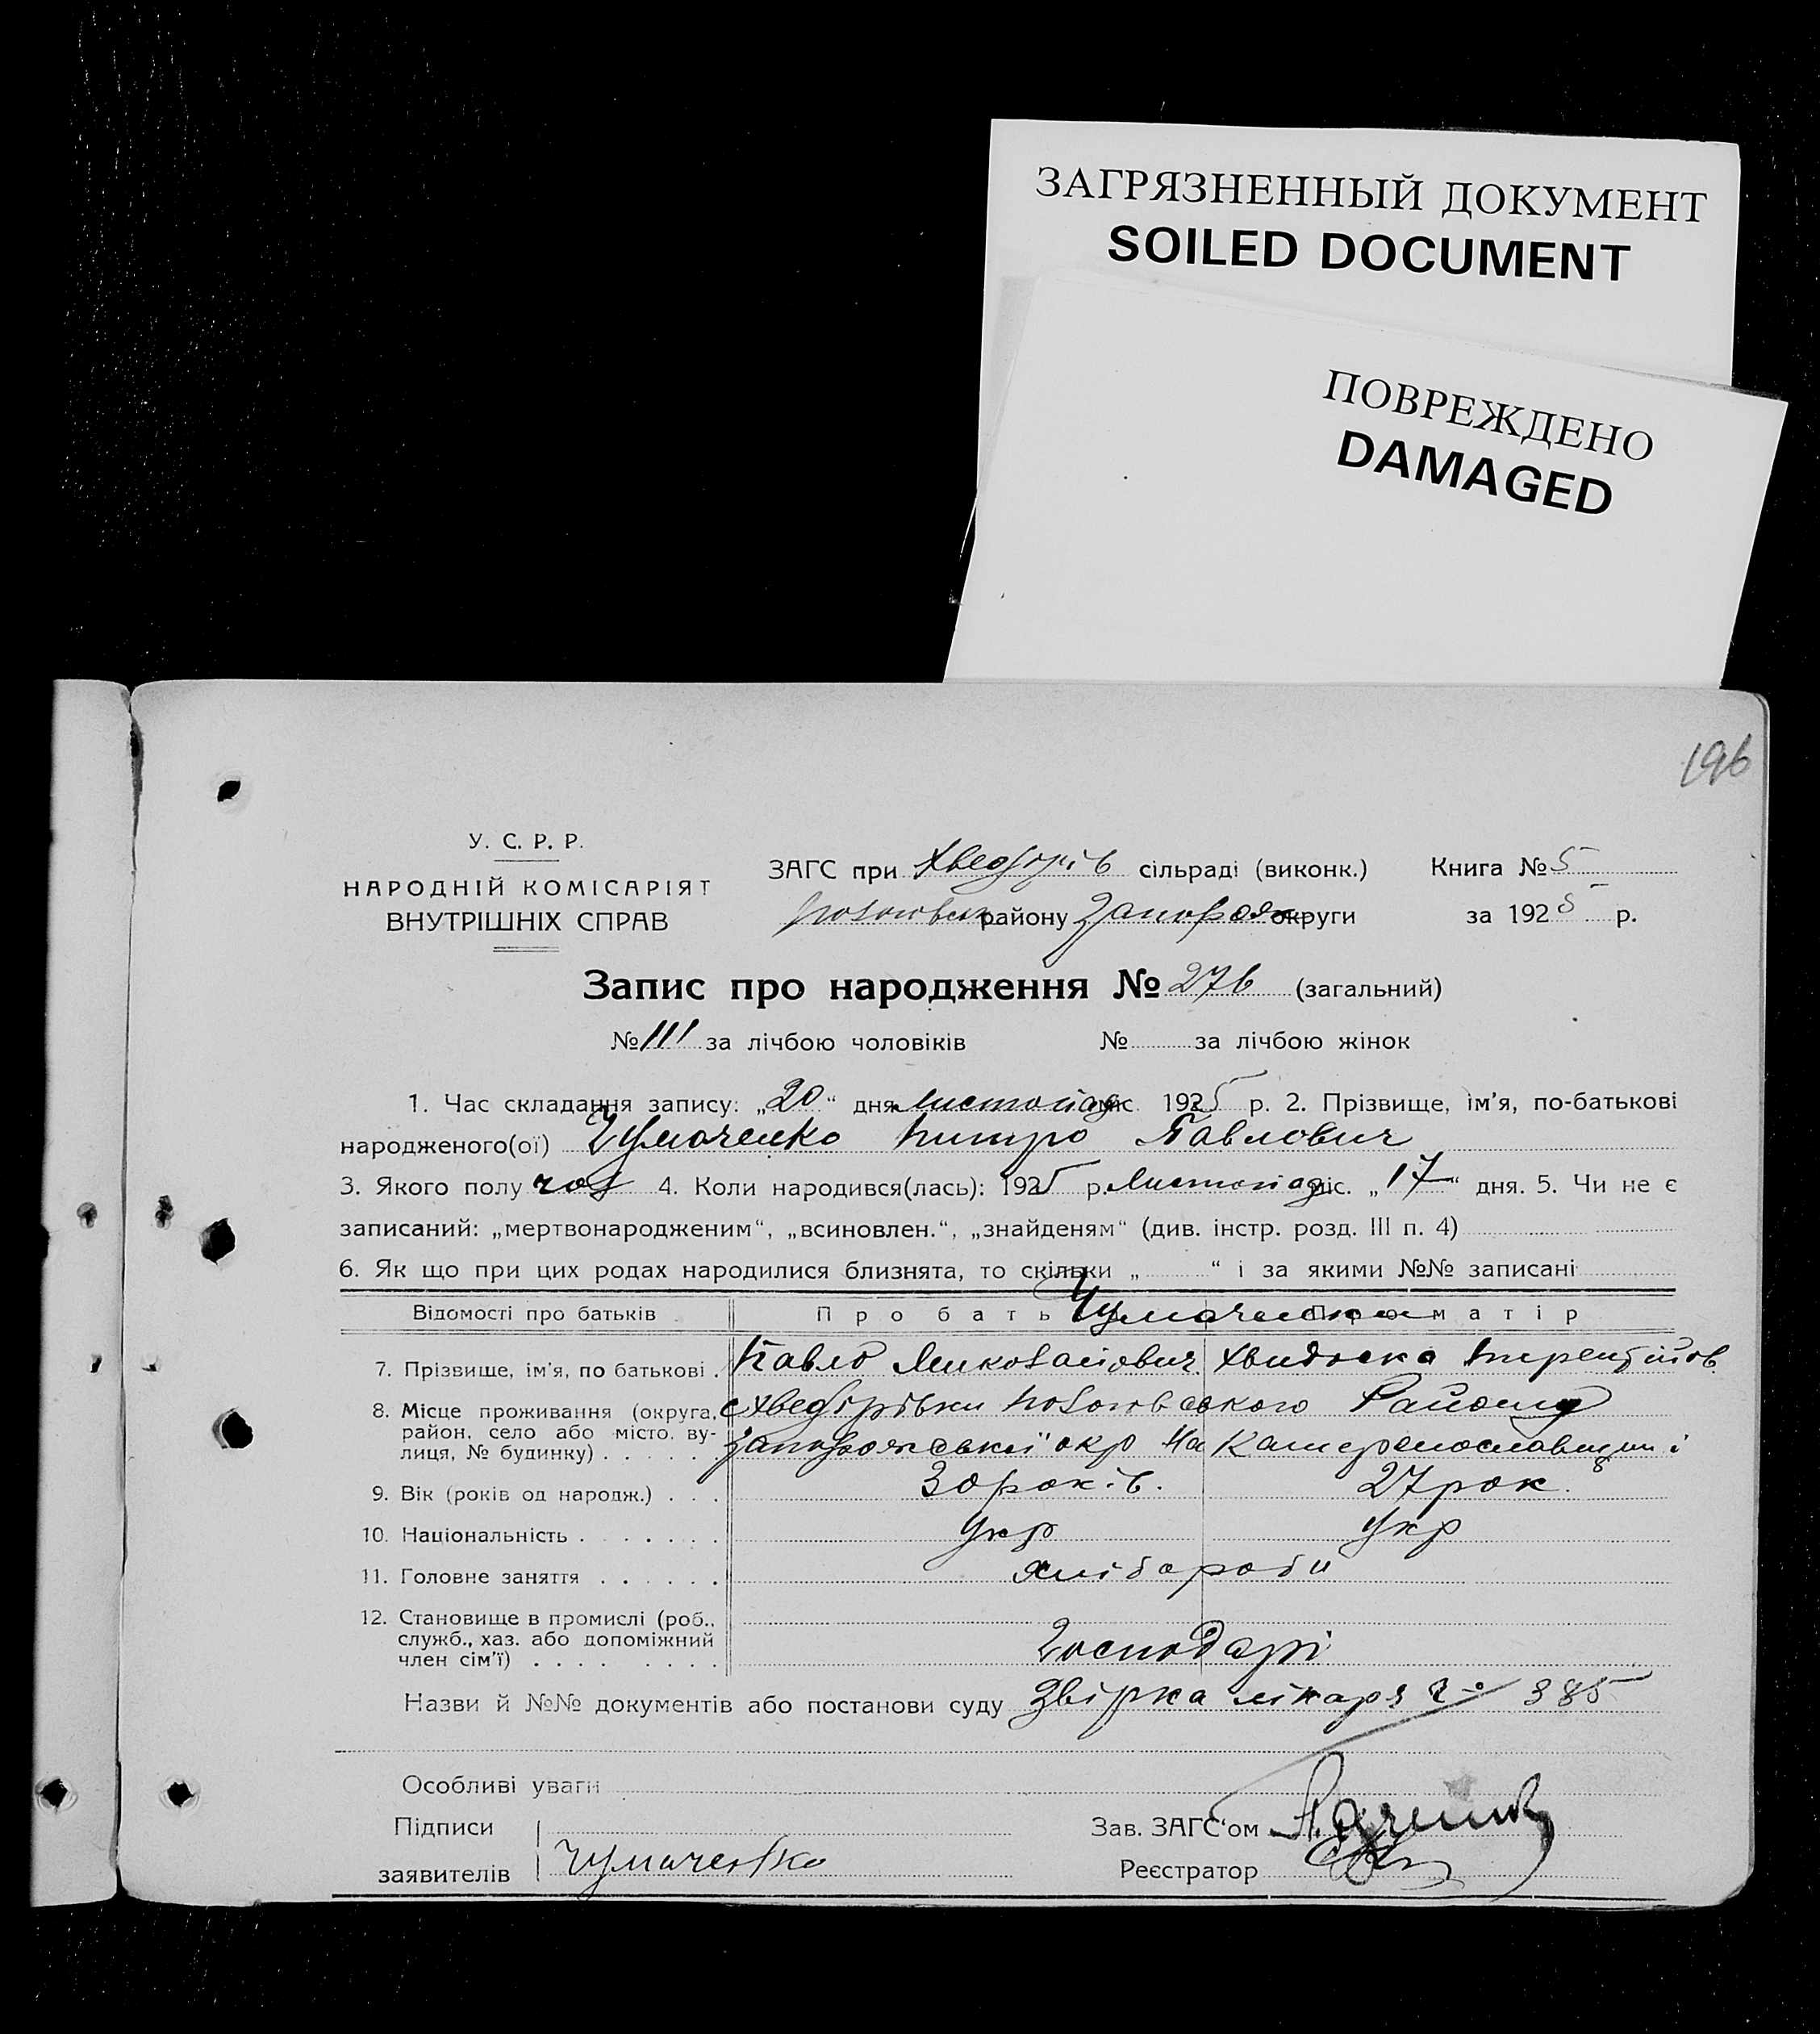 ЗАГРЯЗНЕННЫЙ ДОКУМЕНТ
SOILED DOCUMENT
ПОВРЕЖДЕНО
DAMAGED
196
У. С. Р. Р.
НАРОДНІЙ КОМІСАРІЯТ
ВНУТРІШНІХ СПРАВ
ЗАГС при Хведорів сільраді (виконк.) Книга № 5
району Запорож округи за 1925 р.
Запис про народження № 276 (загальний)
№ 111 за лічбою чоловіків № за лічбою жінок
1. Час складання запису: „20“ дня листопад міс. 1925 р. 2. Прізвище, ім’я, по-батькові
народженого(ої) Чумаченко Питро Павлович
3. Якого полу чол 4. Коли народився(лась): 1925 р. Листопад міс. „17“ дня. 5. Чи не є
записаний: „мертвонародженим“, „всиновлен.“, „знайденям“ (див. інстр. розд. III п. 4)
6. Як що при цих родах народилися близнята, то скільки „ “ і за якими №№ записані
Відомості про батьків Про батька Про матір
Чумаченки
7. Прізвище, ім’я, по батькові . Павло Миколайович Хвидоска
8. Місце проживання (округа, с Хведорівки Району
район, село або місто, ву-
лиця, № будинку) . . . . . . Запорожської окр На Катеринославщині
9. Вік (років од народж.) . . . 30 років. 27 рок.
10. Національність . . . . . . . Укр Укр
11. Головне заняття . . . . . . хлібороби
12. Становище в промислі (роб.,
служб., хаз. або допоміжний
член сім’ї) . . . . . . . . Господарі
Назви й №№ документів або постанови суду Звірка лікаря 385
Особливі уваги
Підписи Зав. ЗАГС‘ом
заявителів Чумаченко Реєстратор